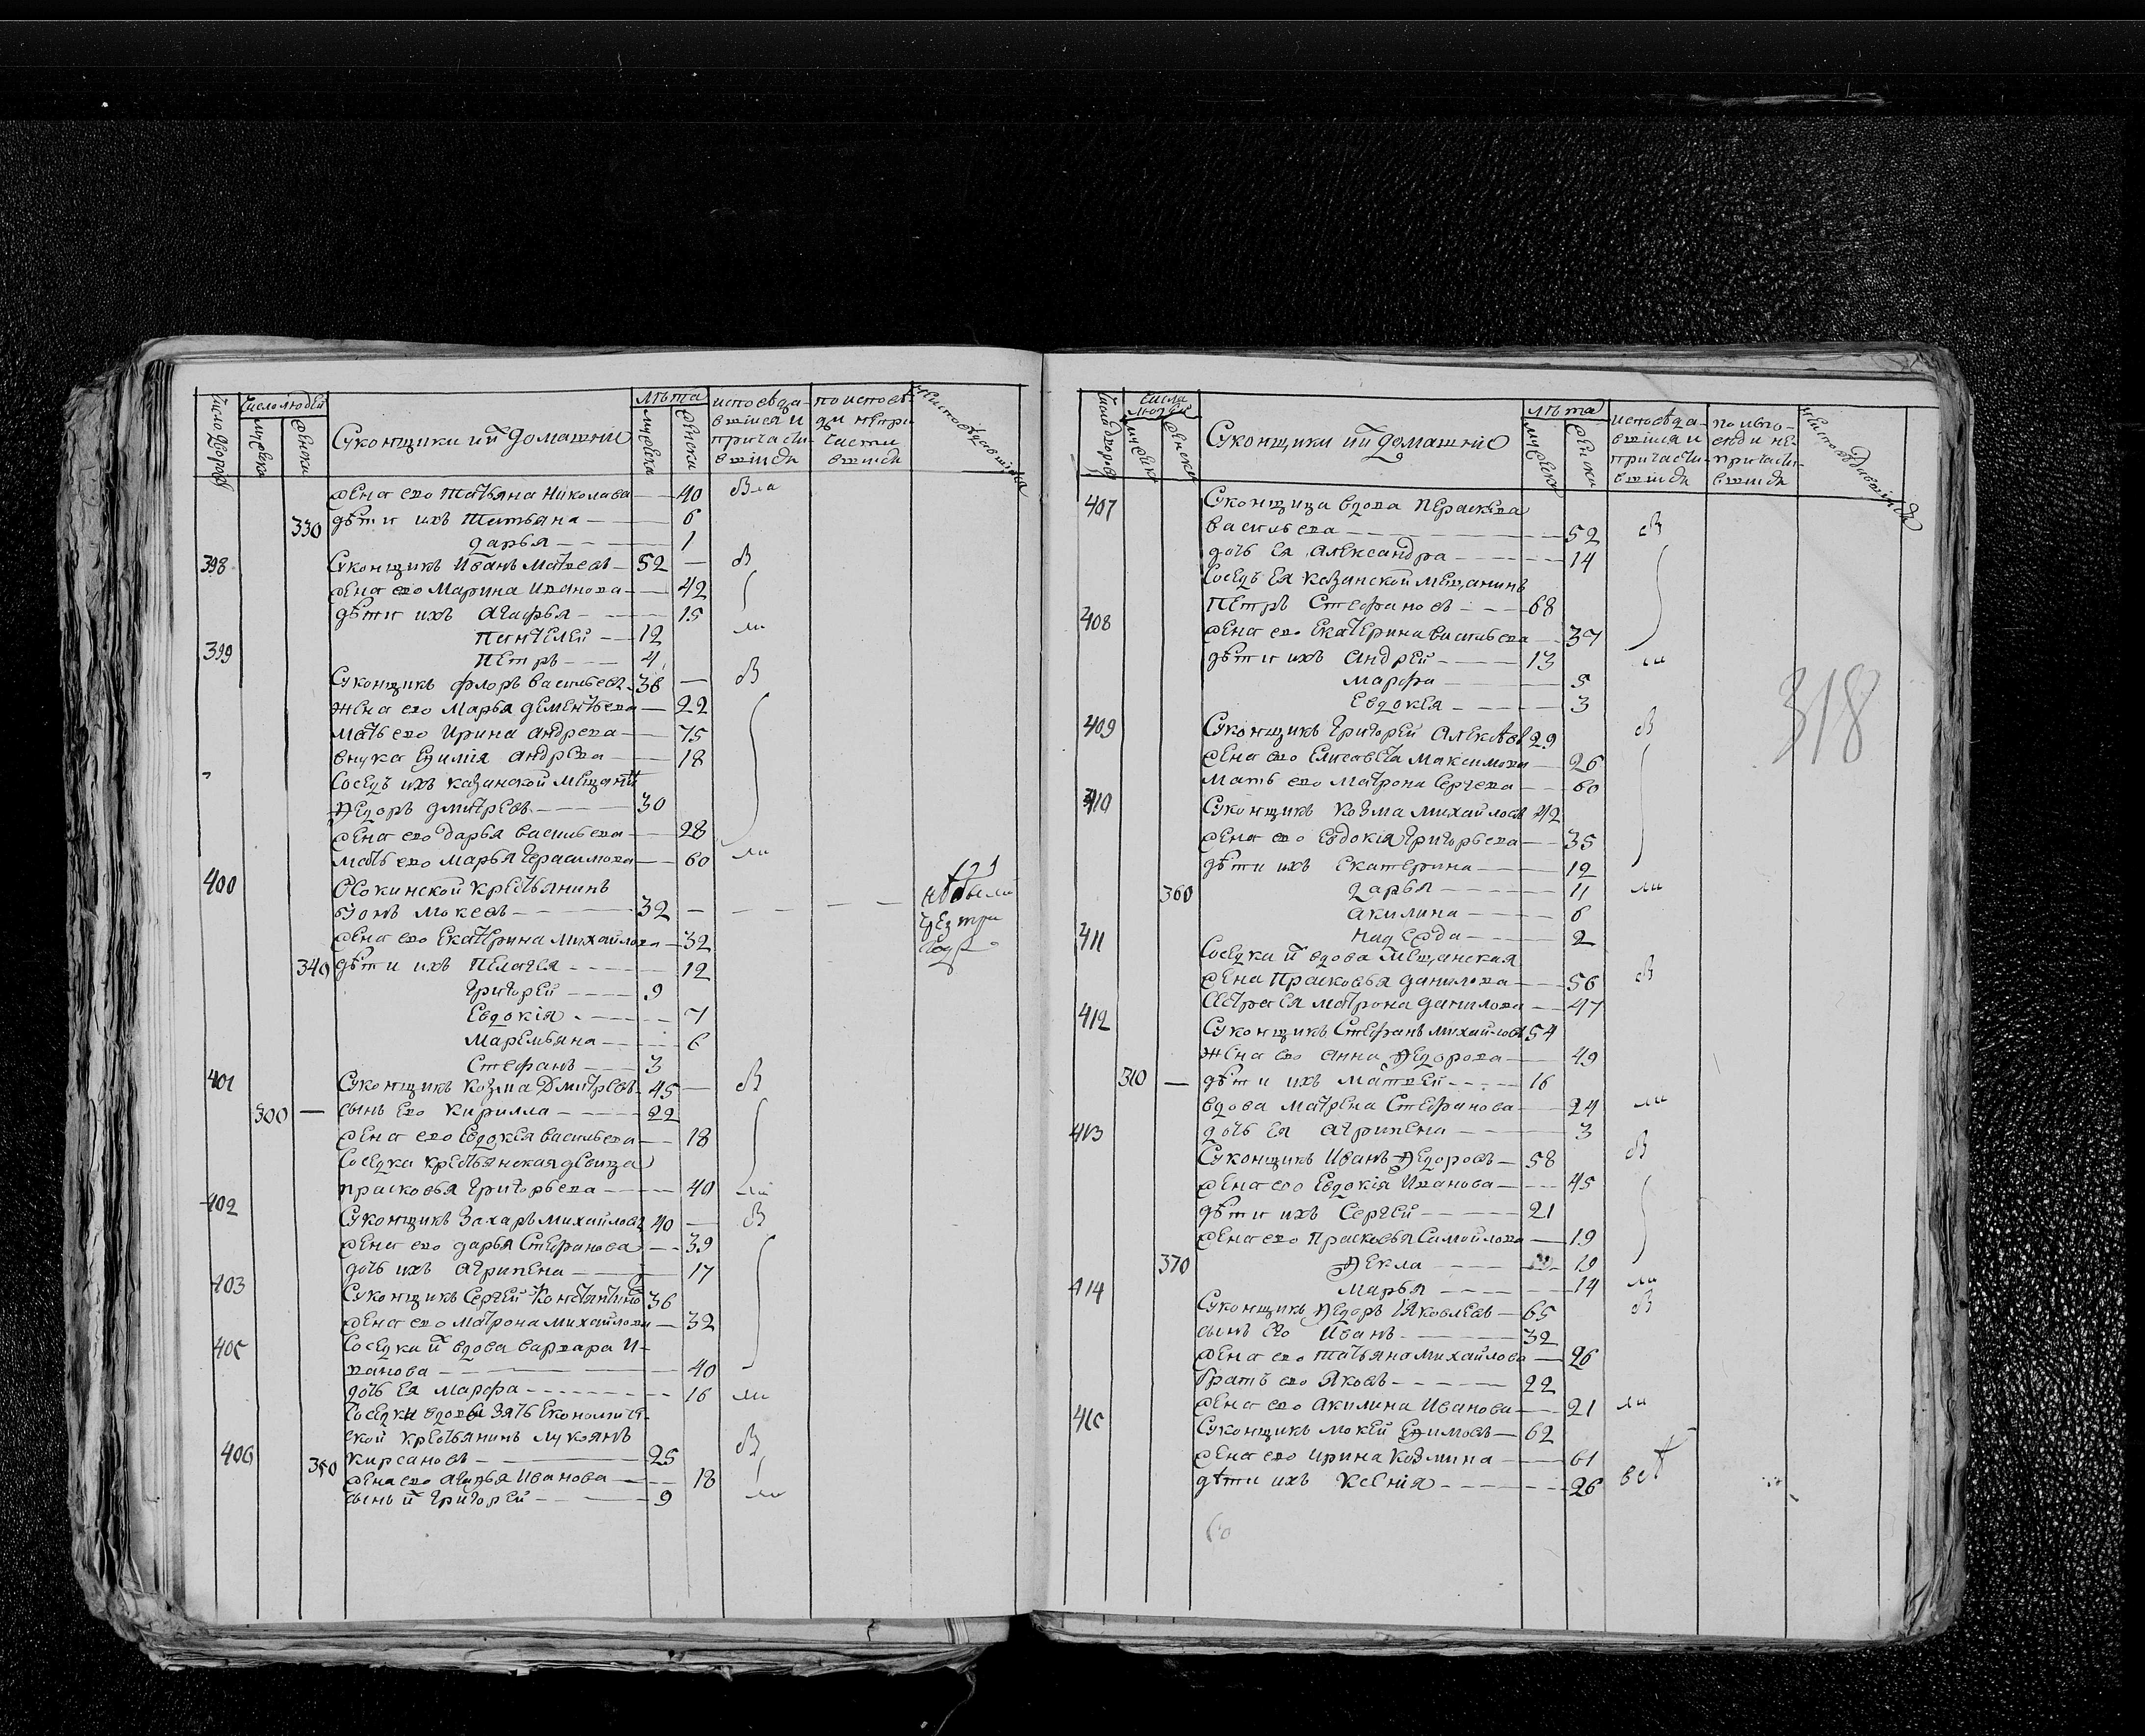 Число дворовъ
Число людей
мужеска
женска
Суконщики и ихъ домашніе
лѣта
мужеска
женска
исповѣда-
вшіися и
причасти-
вшіися
по исповѣ-
ди непри-
части
вшіися
неисповѣдавшіися
жена его Татьяна Николаева — 40
330 дѣти ихъ Татьяна — 6
дарья — 1
398 Суконщикъ Иванъ Матвеевъ — 52 —
жена его Марина Иванова — 42
дѣти ихъ Агафья — 15
Пантелей — 12
399 Петръ — 4
Суконщикъ флоръ васильевъ 36 —
жена его Марья дементьева — 22
мать его Ирина андреева — 75
внука Ефимія андреева — 18
Соседъ ихъ казанской мещанинъ
Федоръ дмитревъ — 30
жена его дарья васильева — 28
мать его марья Герасимова — 60
400 Осокинской крестьянинъ
Іонъ Мокеевъ — 32 —
жена его Екатерина михайлова — 32
340 дѣти ихъ Пелагея — 12
Григорей — 9
Евдокія — 7
Маремьяна — 6
Стефанъ — 3
401 Суконщикъ козма Дмитревъ 45 —
300 — сынъ его кирилла — 22
жена его Евдокея васильева — 18
Соседка крестьянская девица
прасковья григорьева — 40
402 Суконщикъ Захаръ михайловъ 40 —
жена его дарья Стефанова — 39
дочь ихъ Агрипена — 17
403 Суконщикъ Сергей Константиновъ 36
жена его матрона михайлова — 32
405 Соседка и вдова варвара И-
ванова — 40
дочь ея марфа — 16
Соседки вдовы зять Економиче-
ской крестьянинъ лукоянъ
406 350 кирсановъ — 25
жена его агафья Иванова — 18
сынъ Григорей — 9
Число дворовъ
числа людей
мужеска
женска
Суконщики и ихъ домашніе
лѣта
мужеска
женска
исповѣда-
вшіися и
причасти-
вшіися
по испо-
веди не-
причасти-
вшіися
неисповѣдавшіися
407 Суконщица вдова Параскева
васильева — 52
дочь ея Александра — 14
Соседъ ея казанской мещанинъ
Петръ Стефановъ — 68
408 жена его Екатерина васильева — 37
дѣти ихъ андрей — 13
марфа — 5
Евдокея — 3
409 Суконщикъ Григорей Алексѣев 29
жена его Елисавета максимова — 26
мать его матрона Сергеева — 60
410 Суконщикъ козма михайловъ 42
жена его Евдокія Григорьева — 35
дѣти ихъ екатерина — 12
360 дарья — 11
акилина — 6
411 надежда — 2
Соседка и вдова мещанская
жена Прасковья данилова — 56
сестра ея матрона данилова — 47
412 Суконщикъ Стефанъ михайловъ 54
жена его анна Федорова — 49
310 — дѣти ихъ матвей — 16
вдова матрена Стефанова — 24
413 дочь ея агрипена — 3
Суконщикъ Иванъ Федоровъ — 58
жена его Евдокія Иванова — 45
дѣти ихъ Сергей — 21
жена его прасковья Самойлова — 19
370 Фекла — 19
414 марья — 14
Суконщикъ Федоръ Яковлевъ — 65
сынъ его Иванъ — 32
жена его татьяна михайлова — 26
братъ его Яковъ — 22
жена его акилина Иванова — 21
415 Суконщикъ мокей Ефимовъ — 62
жена его ирина козмина — 61
дѣти ихъ ксенія — 26
318